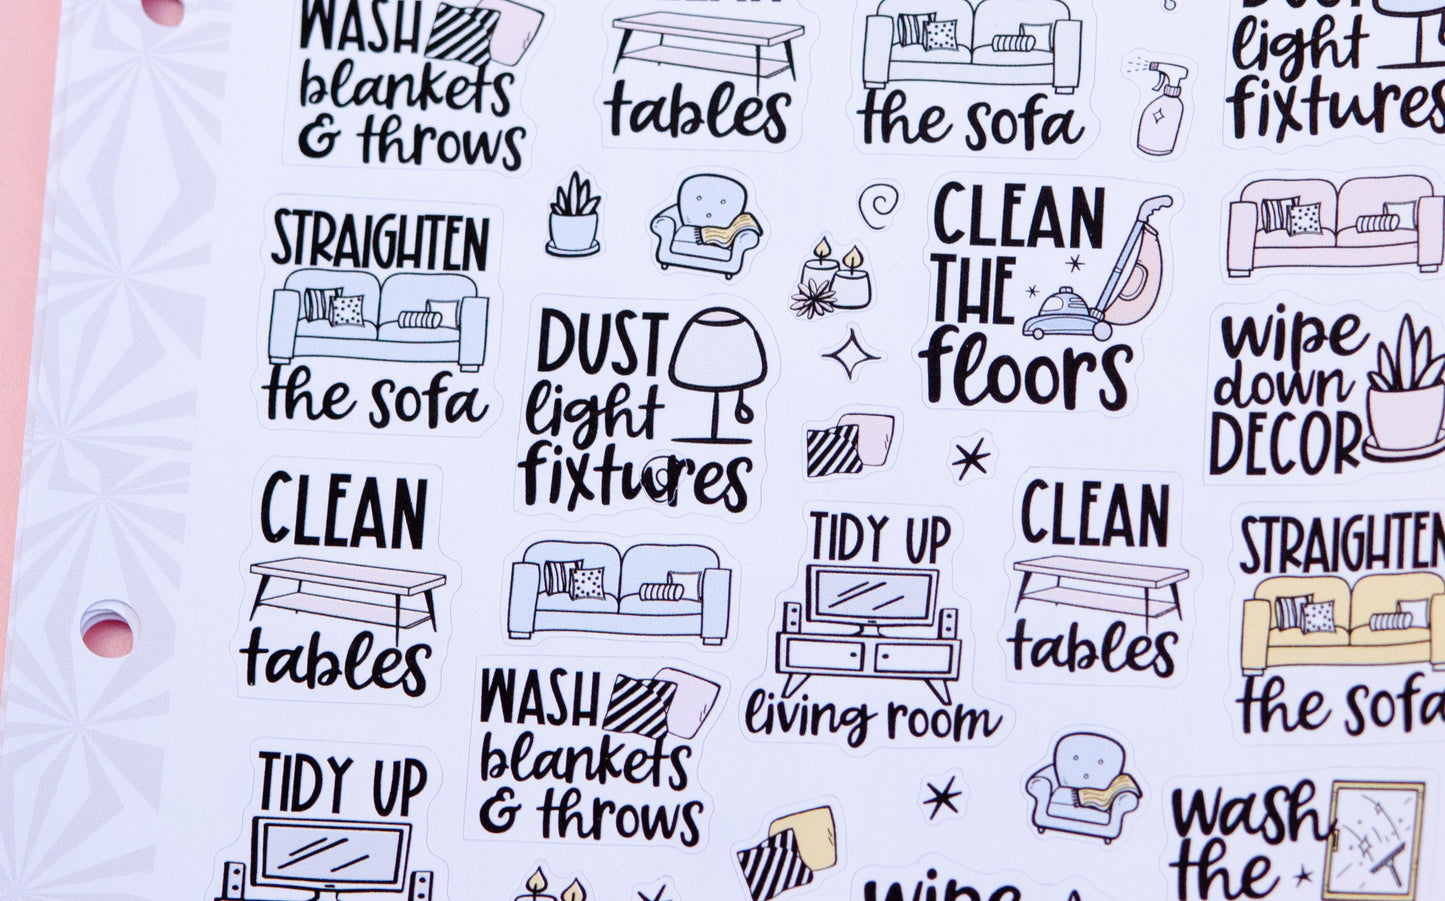 WASH
blankets
& throws
CLEAN
tables
the sofa
DUST
light
fixtures
STRAIGHTEN
the sofa
DUST
light
fixtures
CLEAN
THE
floors
wipe
down
DECOR
CLEAN
tables
WASH
blankets
& throws
TIDY UP
living room
CLEAN
tables
STRAIGHTEN
the sofa
TIDY UP
wipe
wash
the